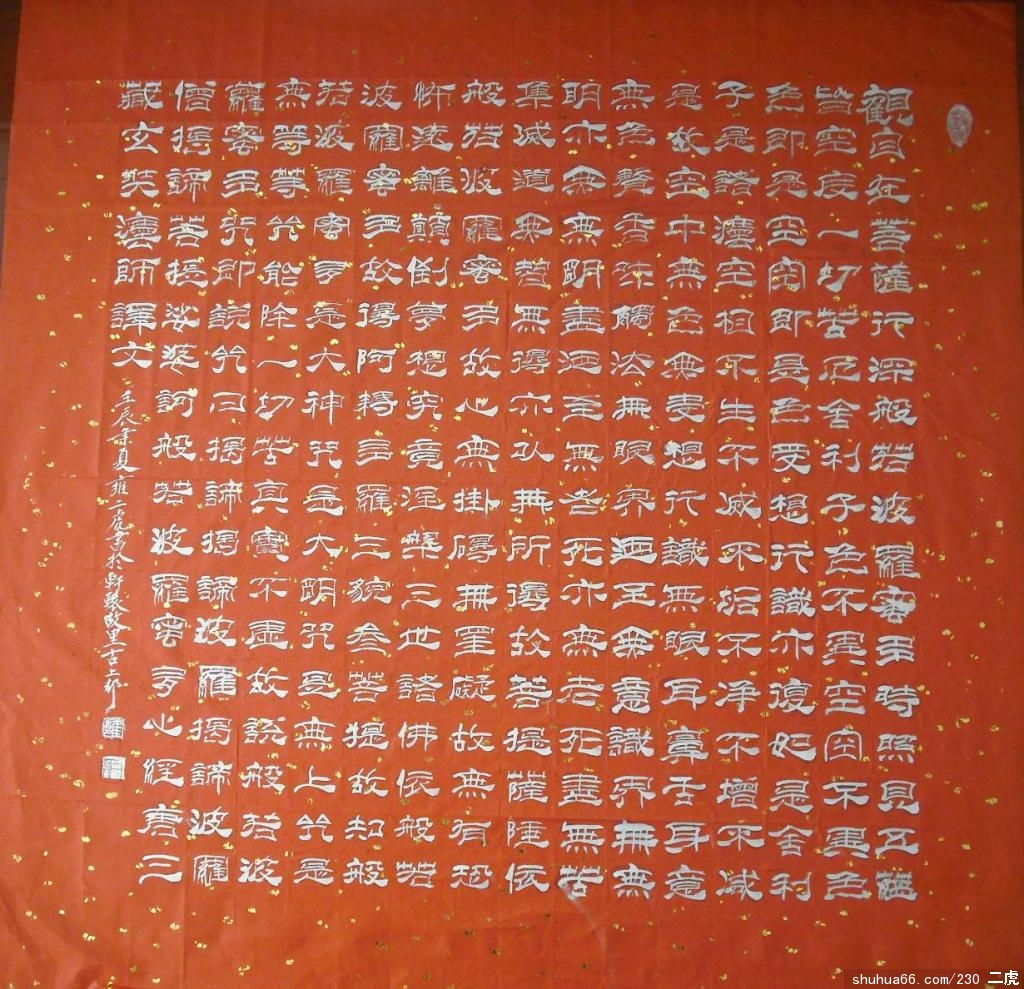 觀自在菩薩行深般若波羅蜜多時照見五蘊
皆空度一切苦厄舍利子色不異空空不異色
色即是空空即是色受想行識亦復如是舍利
子是諸灋空相不生不減不垢不净不增不减
是故空中無色無受想行識無眼耳鼻舌身意
無色聲香味觸法無眼界迺至無意識界無無
明亦無無明盡迺至無老死亦無老死盡無苦
集滅道無智無得亦以無所得故菩提薩埵依
般若波羅蜜多故心無掛碍無罣礙故無有恐
怖遠離顛倒夢想究竟涅槃三世諸佛依般若
波羅蜜多故得阿耨多羅三藐叁菩提故知般
若波羅蜜多是大神咒是大明咒是無上咒是
無等等咒能除一切苦真實不虛故說般若波
羅蜜多咒即說咒曰揭諦揭諦波羅揭諦波羅
僧揭諦菩提娑婆訶般若波羅蜜多心經唐三
藏玄奘灋師譯文
壬辰年夏雍二虎書於軒轅故里古上邽
shuhua66.com/230 二虎